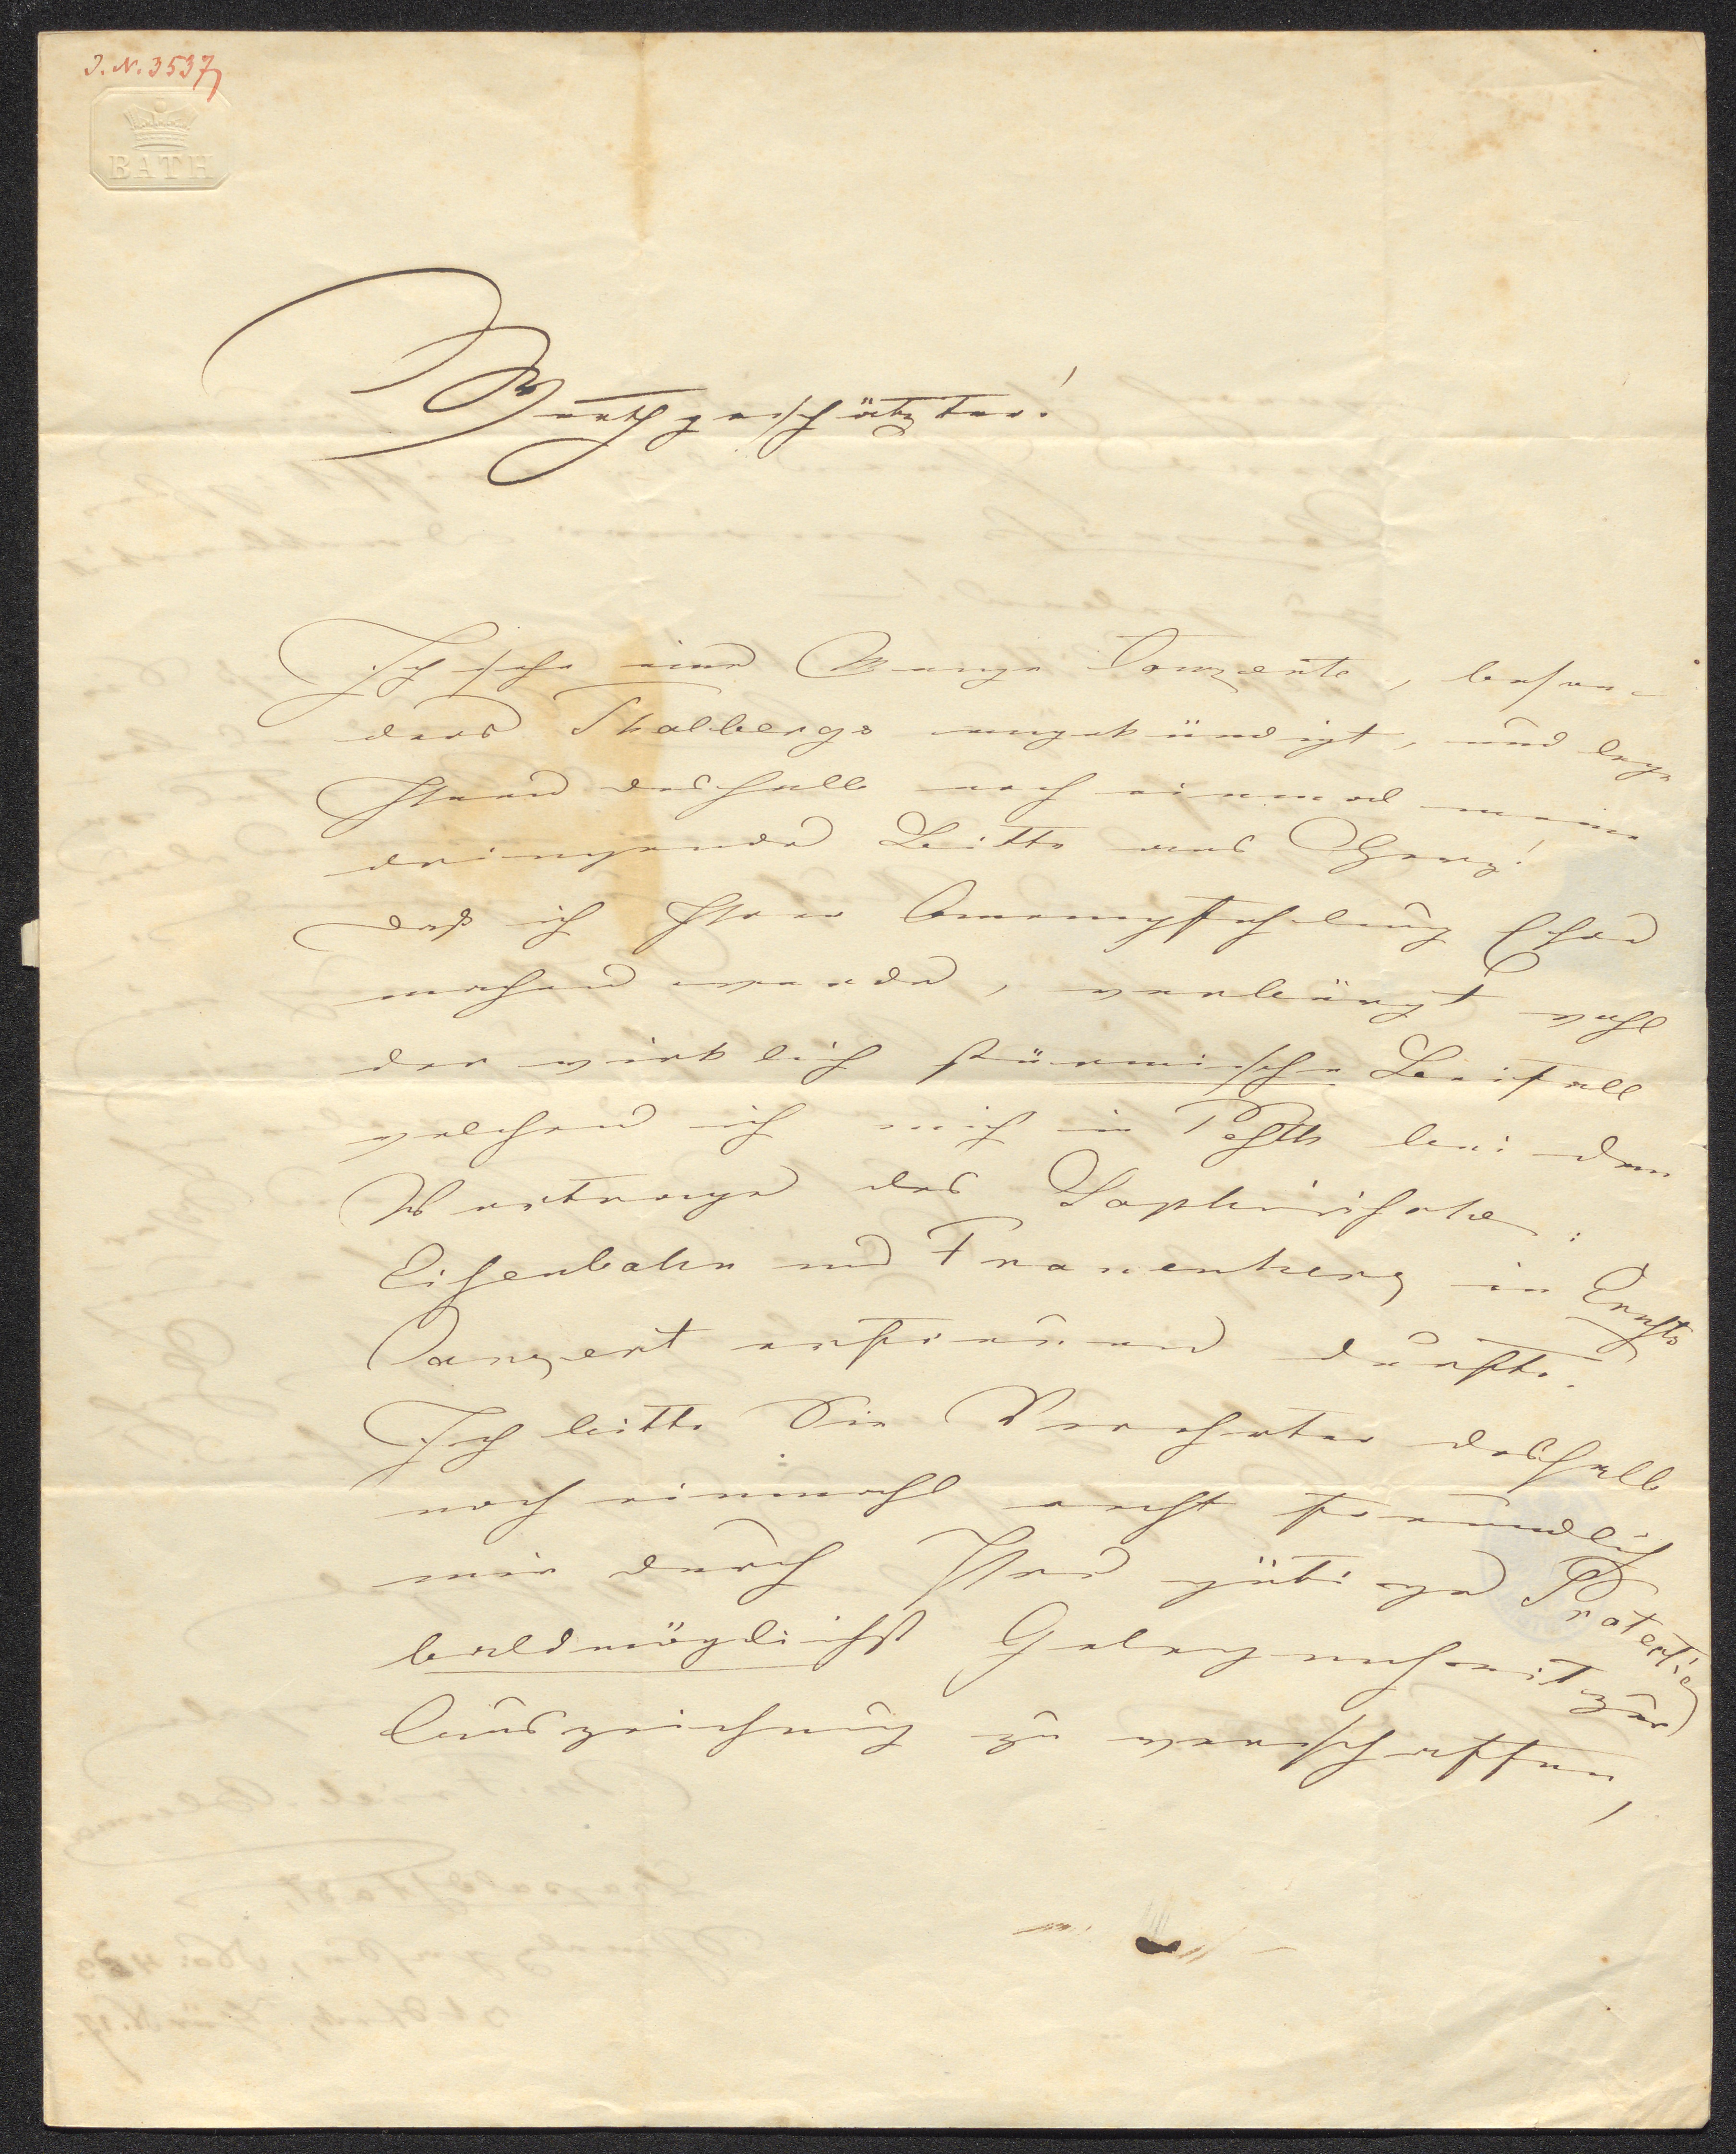 I. N. 3537
BATH
Werthgeschätzter!
Ich sehe eine Menge Conzerte, beson-
ders Thalbergs angekündigt, und lege
Ihnen deshalb noch einmal meine
dringende Bitte ans Herz!
daß ich Ihrer Anempfehlung Ehre
machen werde, verbürgt wohl
der wirklich stürmische Beifall
welchen ich mich in Pesth bei dem
Vortrage des Saphirischen:
Eisenbahn und Frauenherz in Ernsts
Conzert erfreuen durfte.
Ich bitte Sie Verehrter deshalb
noch einmahl recht freundlich
mir durch Ihre gütige Protection
baldmöglichst Gelegenheit zur
Auszeichnung zu verschaffen,